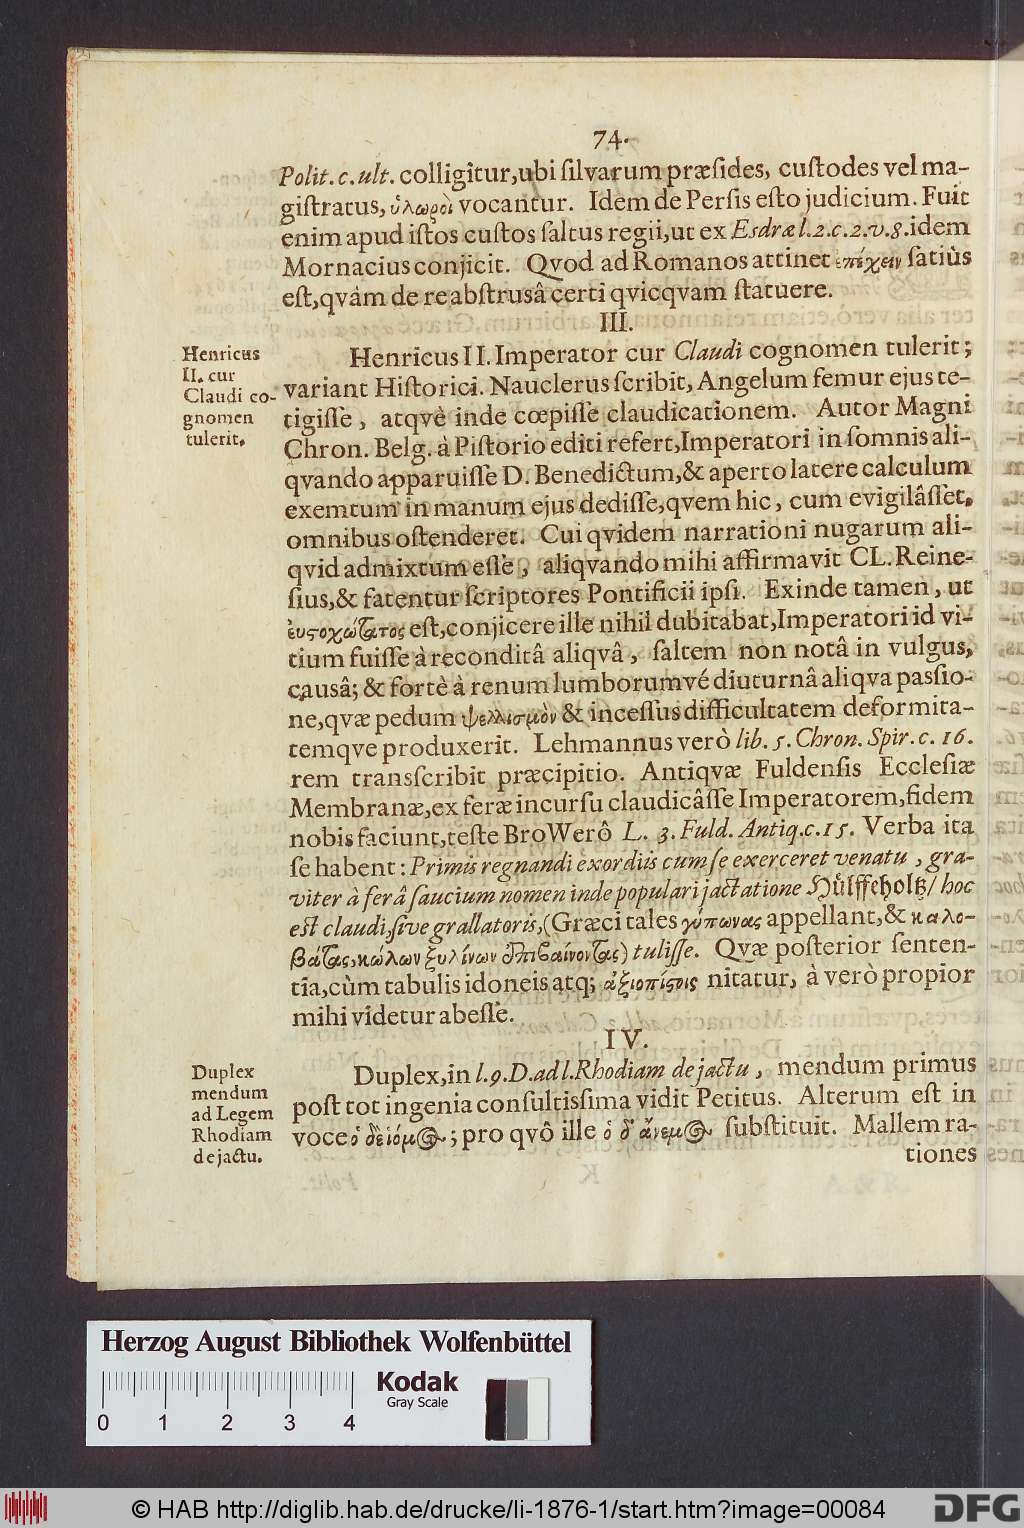 74.
Polit. c. ult. colligitur, ubi silvarum præsides, custodes vel ma-
gistratus, ὑλωροὶ vocantur. Idem de Persis esto judicium. Fuit
enim apud istos custos saltus regii, ut ex Esdræ l. 2. c. 2. v. 8. idem
Mornacius conjicit. Qvod ad Romanos attinet ἐπέχειν satiùs
est, qvàm de re abstrusâ certi qvicqvam statuere.
III.
Henricus
II. cur
Claudi co-
gnomen
tulerit.
Henricus II. Imperator cur Claudi cognomen tulerit;
variant Historici. Nauclerus scribit, Angelum femur ejus te-
tigisse, atqvè inde cœpisse claudicationem. Autor Magni
Chron. Belg. à Pistorio editi refert, Imperatori in somnis ali-
qvando apparuisse D. Benedictum, & aperto latere calculum
exemtum in manum ejus dedisse, qvem hic, cum evigilâsset,
omnibus ostenderet. Cui qvidem narrationi nugarum ali-
qvid admixtum esse, aliqvando mihi affirmavit CL. Reine-
sius, & fatentur scriptores Pontificii ipsi. Exinde tamen, ut
ἐυστοχώτατος est, conjicere ille nihil dubitabat, Imperatori id vi-
tium fuisse à reconditâ aliqvâ, saltem non notâ in vulgus,
causâ; & fortè à renum lumborumvé diuturnâ aliqva passio-
ne, qvæ pedum ψελλισμὸν & incessus difficultatem deformita-
temqve produxerit. Lehmannus verò lib. 5. Chron. Spir. c. 16.
rem transcribit præcipitio. Antiqvæ Fuldensis Ecclesiæ
Membranæ, ex feræ incursu claudicâsse Imperatorem, fidem
nobis faciunt, teste BroWerô L. 3. Fuld. Antiq. c. 15. Verba ita
se habent: Primis regnandi exordiis cum se exerceret venatu, gra-
viter à ferâ saucium nomen inde populari jactatione Hülffeholtz/ hoc
est claudi, sive grallatoris, (Græci tales γύπωνας appellant, & καλο-
βάτας, κώλων ξυλίνων ἐπιβαίνοντας) tulisse. Qvæ posterior senten-
tia, cùm tabulis idoneis atq; ἀξιοπίστοις nitatur, à verò propior
mihi videtur abesse.
IV.
Duplex
mendum
ad Legem
Rhodiam
de jactu.
Duplex, in l. 9. D. ad l. Rhodiam de jactu, mendum primus
post tot ingenia consultissima vidit Petitus. Alterum est in
voce ὁ δὲ ἰόμος; pro qvô ille ὁ δ' ἄνεμος substituit. Mallem ra-
tiones
Herzog August Bibliothek Wolfenbüttel
0 1 2 3 4
Kodak
Gray Scale
© HAB http://diglib.hab.de/drucke/li-1876-1/start.htm?image=00084
DFG